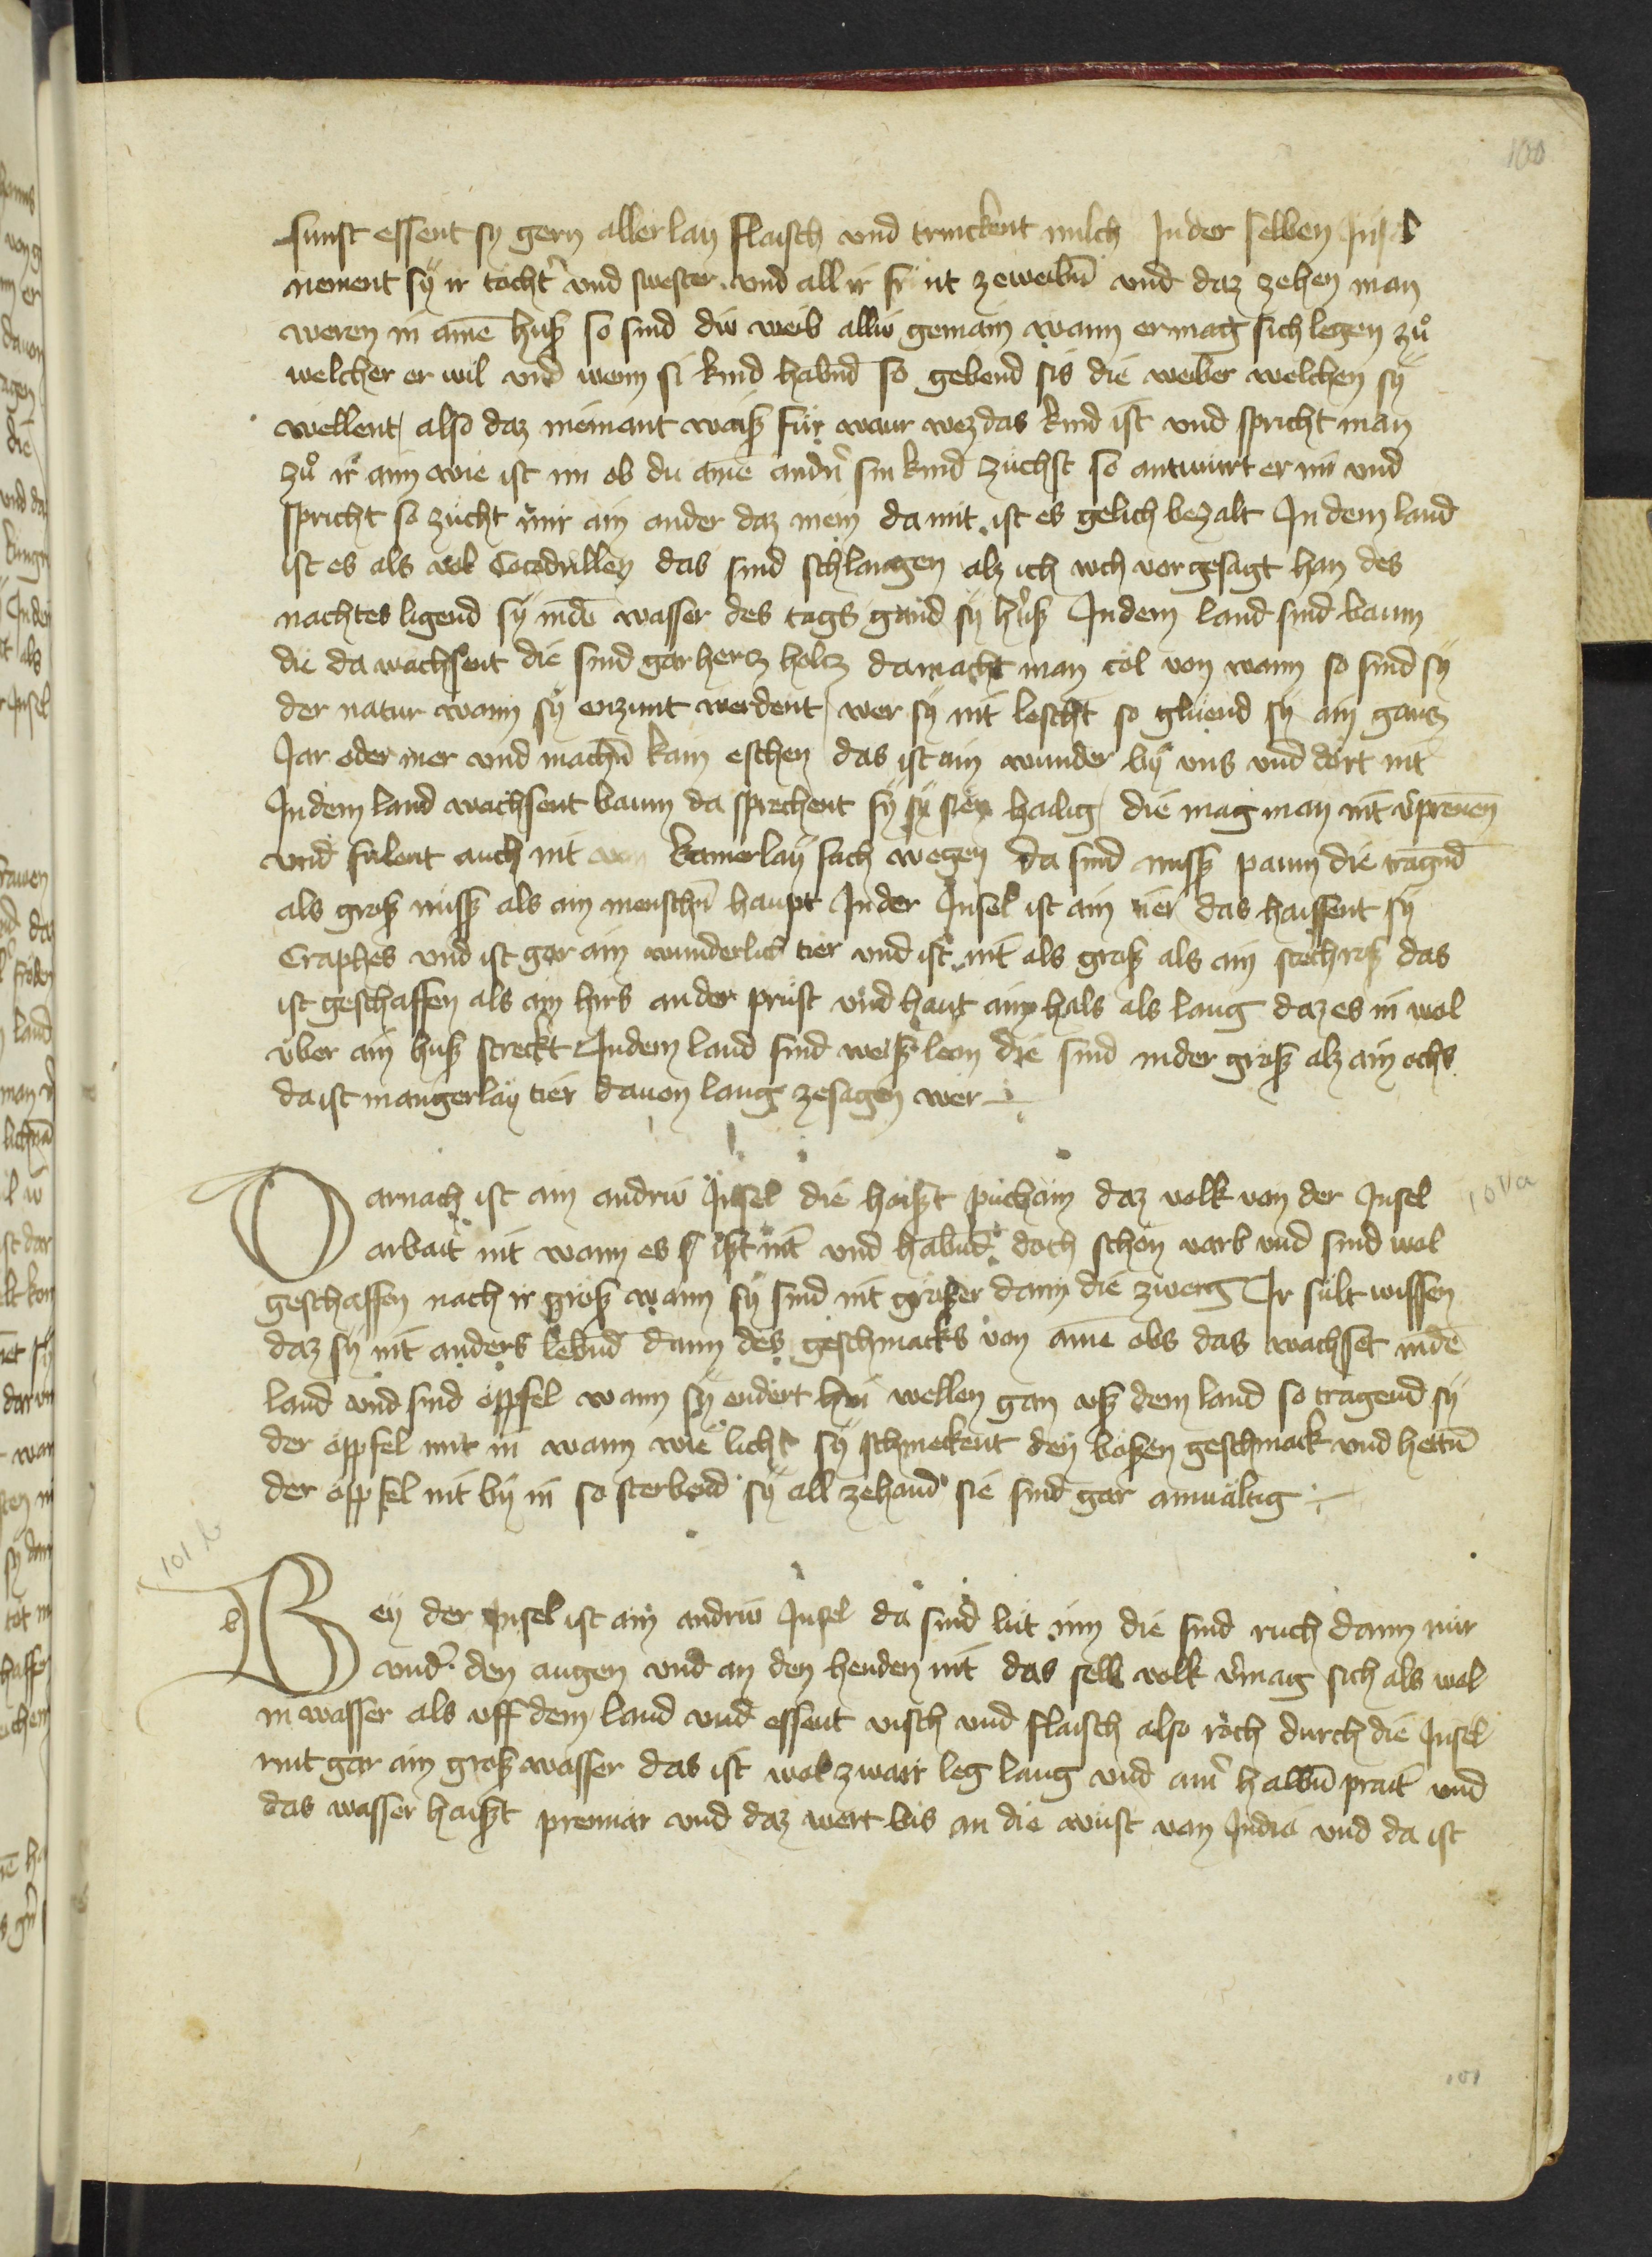 100
sunst essent sy gern allerlay flaisch vnd trinckent milch Jn der selben Jnsel
nement sÿ ir tocht̃ vnd swester vnd all ir fr nt ze weibn̄ vnd daz zehen man
weren in aim̄ huß so sind die weib alliw gemain wann er mag sich legen zů
welcher er wil vnd wenn si kind habnd so gebend sis die weiber welchen sÿ
wellent also daz niemant waiß für waur wez das kind ist vnd spricht man
zů ir aim wie ist im ob du aim̄ andn̄ sin kind züchst so antwürt er im vnd
spricht so zücht mir ain ander daz mein da mit ist es gelich bezalt Jn dem land
ist es als vol Cocodrillen das sind schlangen alz ich úch vor gesagt han des
nachtes ligend sÿ in dē wasser des tags gand sÿ hruß Jn dem land sind baum
die da wachsent die sind gar hertz holtz da macht man col von wann so sind sÿ
der natur wann sÿ enzunt werdent wer sÿ nit lescht so glüend sÿ ain gantz
Jar oder mer vnd machn̄ kain eschen das ist ain wunder bÿ vns vnd dort nit
Jn dem land wachsent baum da sprechent sÿ sÿ sien hailig die mag man nit v̄prenen̄
vnd fulent auch nit von kainerlaÿ sach wegen da sind nuss paum die tragnd
als groß nüss als ain menschn̄ haupt Jn der Jnsel ist ain tier das haissent sÿ
Craphes vnd ist gar ain wunderlich tier vnd ist nit als groß als ain stechroß das
ist geschaffen als ain hirs an der prust vnd haut ain hals als lang daz es in wol
über ain huß streckt Jn dem land sind weiß leon die sind in der groß alz ain ochs
da ist mangerlaÿ tier dauon lang ze sagen wer
Darnach ist ain andriw Jnsel die haißt puchain daz volk von der Jnsel
arbait nit wann es ißt nit vnd habnd doch schön varb vnd sind wol
geschaffen nach ir größ wann sÿ sind nit größer dann die zwerg Jr sült wissen
daz sÿ nit anders lebnd dann des geschmacks von aim̄ obs das wachset in dē
land vnd sind öppfel wann sÿ endert hin wellen gan vß dem land so tragend sÿ
der öppfel mit in wann wie licht sÿ schmekent den bösen geschmack vnd hettn̄
der öppfel nit bÿ in so sterbend sÿ all zehand sie sind gar ainualtig
101a
101 b
b
Beÿ der Jnsel ist ain andriw Jnsel da sind lüt inn die sind ruch dann nur
vnd̃ den augen vnd an den henden nit das selb volk v̄mag sich als wol
in wasser als vff dem land vnd essent visch vnd flaisch also roch durch die Jnsel
rint gar ain groß wasser das ist wol zwair leg lang vnd ain̄ halbn̄ prait vnd
das wasser haißt premar vnd daz wert bis an die wüst von Jndia vnd da ist
101